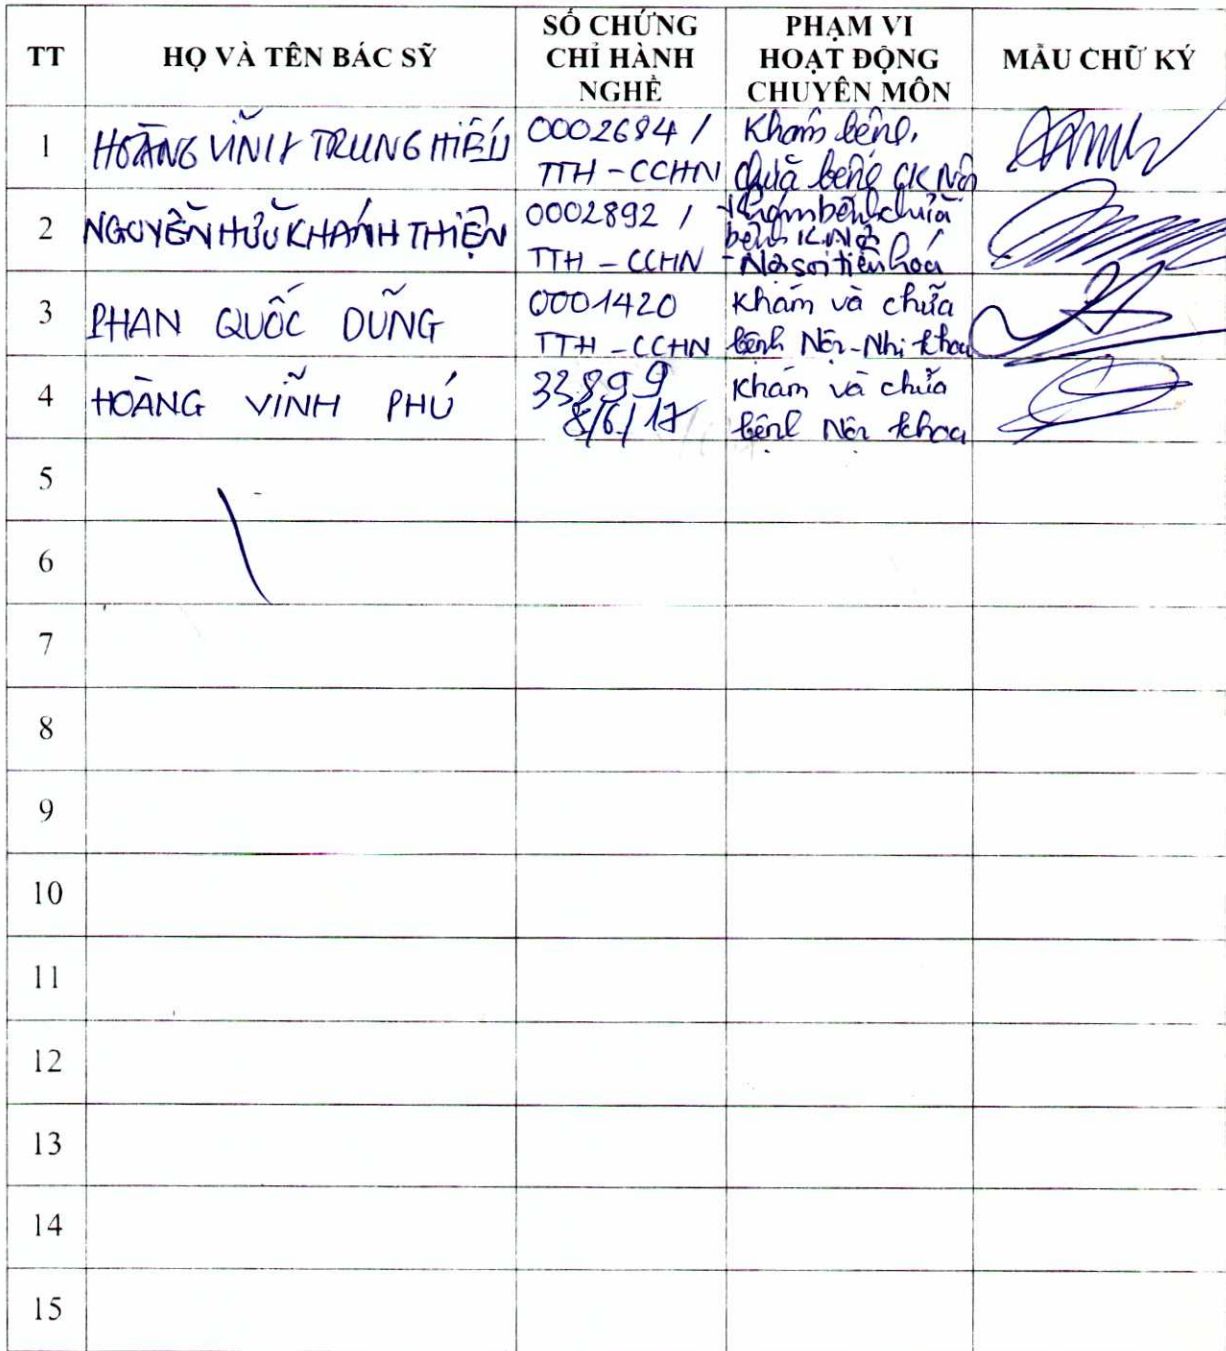 TT HỌ VÀ TÊN BÁC SỸ SỐ CHỨNG CHỈ HÀNH NGHỀ PHẠM VI HOẠT ĐỘNG CHUYÊN MÔN MẪU CHỮ KÝ
1 HOÀNG VĨNH TRUNG HIẾU 0002684 / Khám bệnh,
TTH - CCHN chữa bệnh CK Nội
2 NGUYỄN HỮU KHÁNH THIỆN 0002892 / - Khám bệnh chữa
bệnh K.Nội
TTH - CCHN - Nội soi tiêu hoá
3 PHAN QUỐC DŨNG 0001420 Khám và chữa
TTH - CCHN bệnh Nội - Nhi khoa
4 HOÀNG VĨNH PHÚ 33899 Khám và chữa
8/6/17 bệnh Nội khoa
5
6
7
8
9
10
11
12
13
14
15